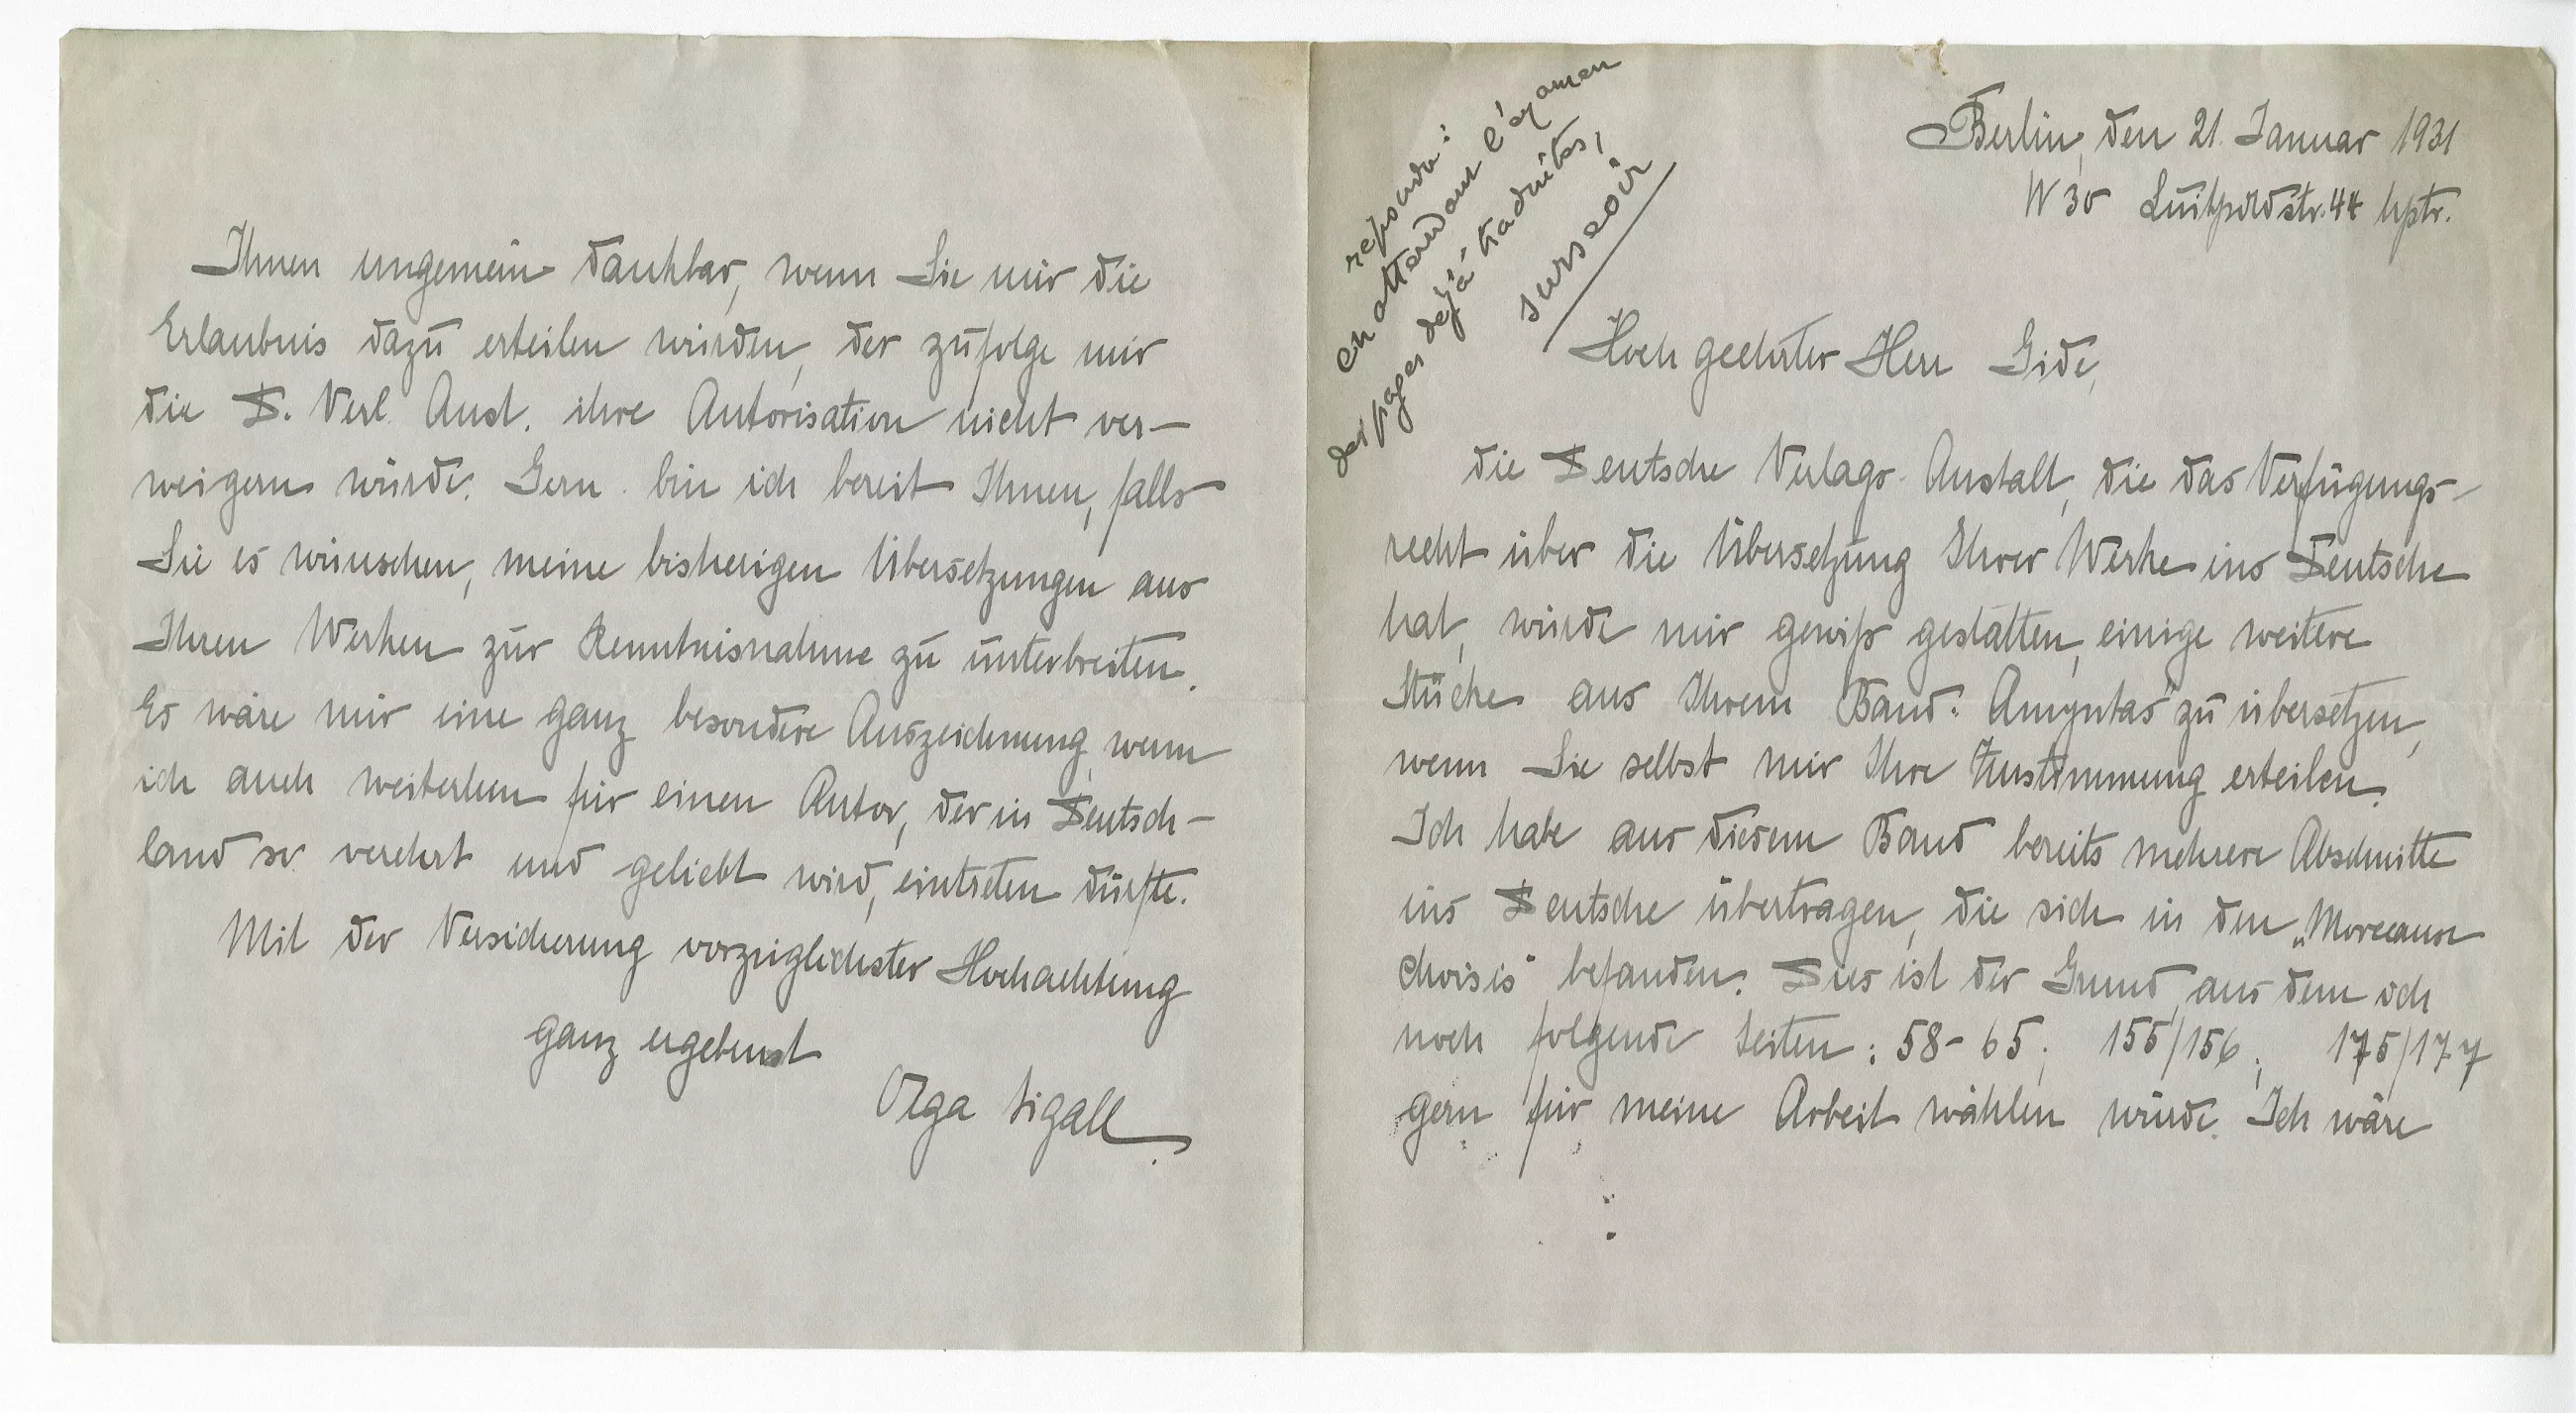 Berlin, den 21. Januar 1931
W 30 Luitpoldstr. 44 hptr.
reponde:
en attendant l'examen
des pages déjà traduites,
surseoir
Hochgeehrter Herr Gide,
die Deutsche Verlags-Anstalt, die das Verfügungs-
recht über die Übersetzung Ihrer Werke ins Deutsche
hat, würde mir gewiß gestatten, einige weitere
Stücke aus Ihrem Band: Amyntas" zu übersetzen,
wenn Sie selbst mir Ihre Zustimmung erteilen.
Ich habe aus diesem Band bereits mehrere Abschnitte
ins Deutsche übertragen, die sich in den „Morceaux
choisis" befanden. Dies ist der Grund, aus dem ich
noch folgende Seiten: 58-65; 155/156; 175/177
gern für meine Arbeit wählen würde. Ich wäre
Ihnen ungemein dankbar, wenn Sie mir die
Erlaubnis dazu erteilen würden, der zufolge mir
die D. Verl. Anst. ihre Autorisation nicht ver-
weigern würde. Gern bin ich bereit Ihnen, falls
Sie es wünschen, meine bisherigen Übersetzungen aus
Ihren Werken zur Kenntnisnahme zu unterbreiten.
Es wäre mir eine ganz besondere Auszeichnung, wenn
ich auch weiterhin für einen Autor, der in Deutsch-
land so verehrt und geliebt wird, eintreten dürfte.
Mit der Versicherung vorzüglichster Hochachtung
ganz ergebenst
Olga Sigall.